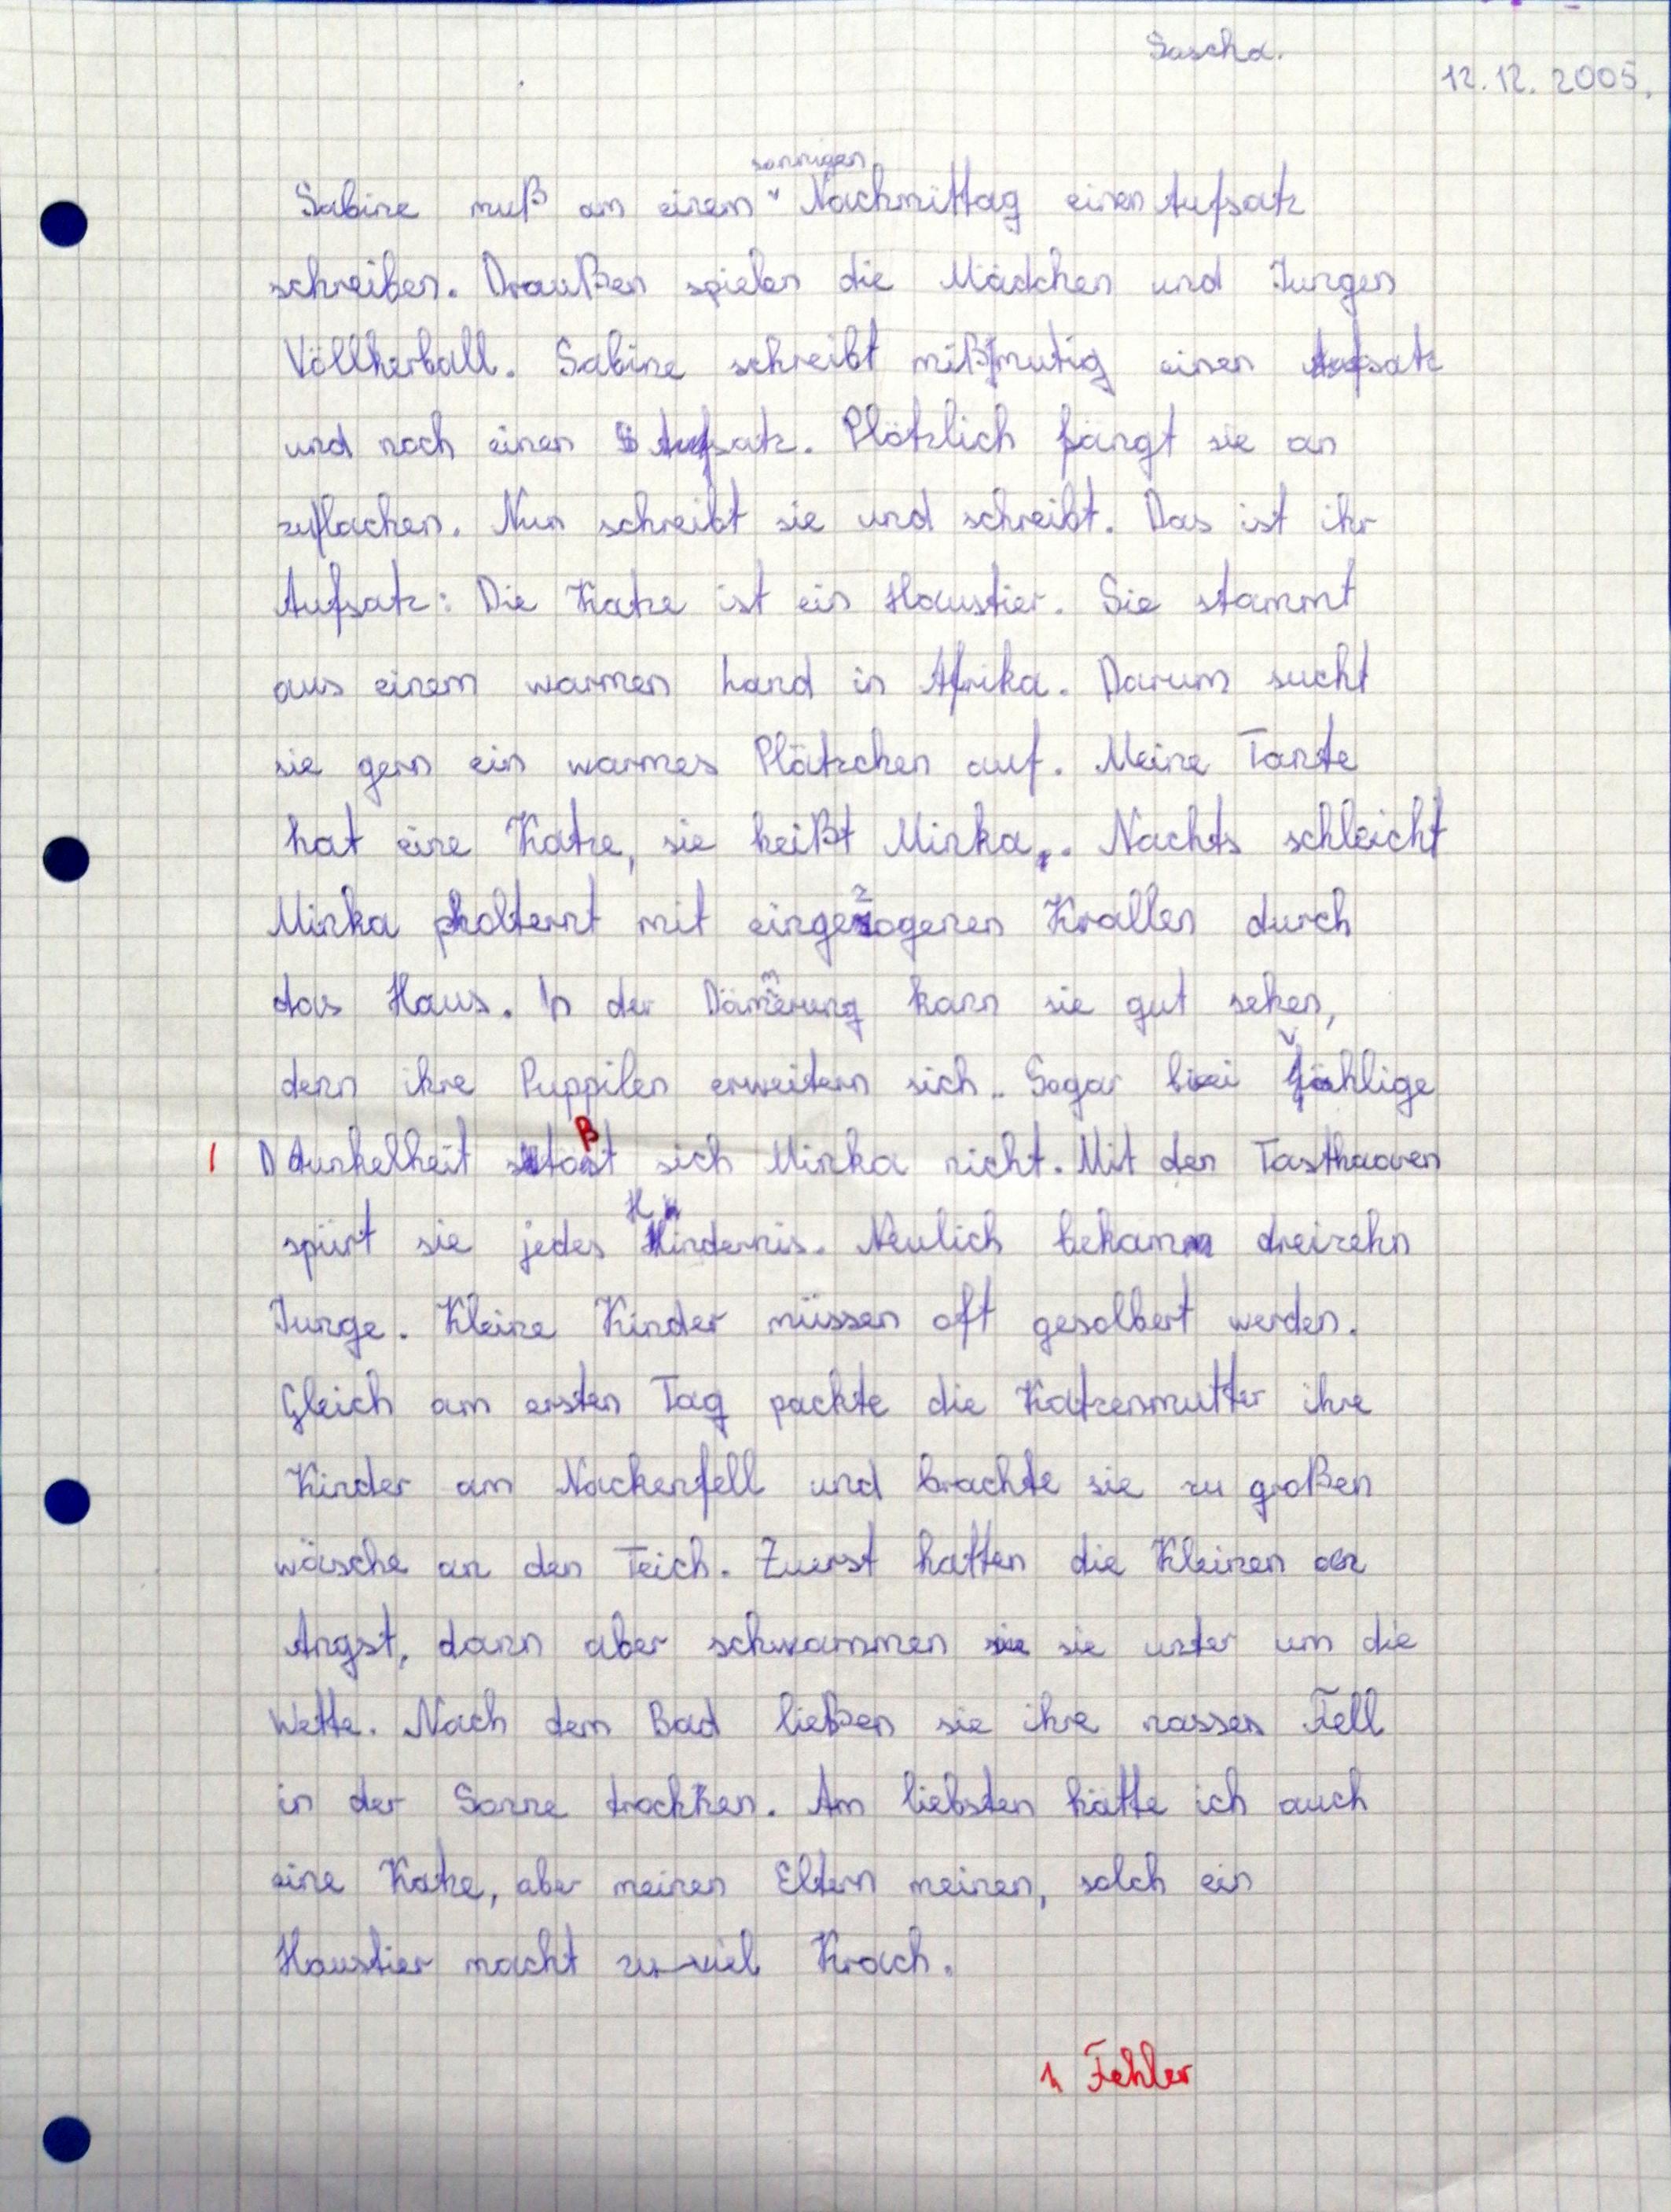 Sascha.
12.12.2005.
sonnigen
Sabine muß an einem Nachmittag einen Aufsatz
schreiben. Draußen spielen die Mädchen und Jungen
Völlkerball. Sabine schreibt mißmutig einen Aufsatz
und noch einen Aufsatz. Plötzlich fängt sie an
zu lachen. Nun schreibt sie und schreibt. Das ist ihr
Aufsatz: Die Katze ist ein Haustier. Sie stammt
aus einem warmen Land in Afrika. Darum sucht
sie gern ein warmes Plätzchen auf. Meine Tante
hat eine Katze, sie heißt Minka. Nachts schleicht
Minka mit eingezogenen Krallen durch
das Haus. In der Dämmerung kann sie gut sehen,
denn ihre Puppilen erweitern sich. Sogar bei
1 Dunkelheit sich Minka nicht. Mit den Tasthaaren
ß
spürt sie jedes Hindernis. Neulich bekam dreizehn
Junge. Kleine Kinder müssen oft gesalbert werden.
Gleich am ersten Tag packte die Katzenmutter ihre
Kinder am Nackenfell und brachte sie zu großen
wäsche an den Teich. Zuerst hatten die Kleinen
Angst, dann aber schwammen sie unter um die
Wette. Nach dem Bad ließen sie ihre nasses Fell
in der Sonne trocknen. Am liebsten hätte ich auch
eine Katze, aber meinen Eltern meinen, solch ein
Haustier macht zu viel Krach.
1 Fehler